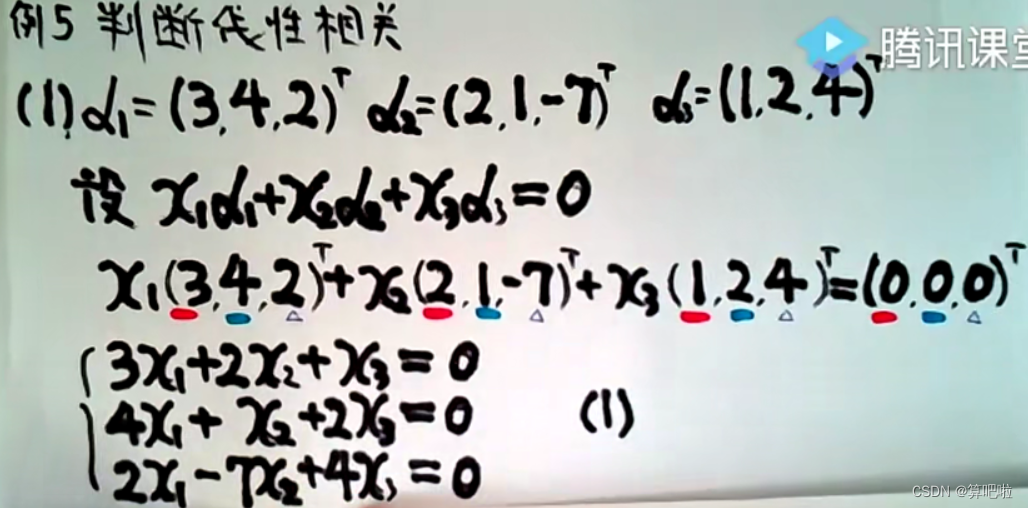 例5 判断线性相关
腾讯课堂
(1) α₁=(3,4,2)ᵀ α₂=(2,1,-7)ᵀ α₃=(1,2,4)ᵀ
设 x₁α₁+x₂α₂+x₃α₃=0
x₁(3,4,2)ᵀ+x₂(2,1,-7)ᵀ+x₃(1,2,4)ᵀ=(0,0,0)ᵀ
3x₁+2x₂+x₃=0
4x₁+x₂+2x₃=0 (1)
2x₁-7x₂+4x₃=0
CSDN @算吧啦